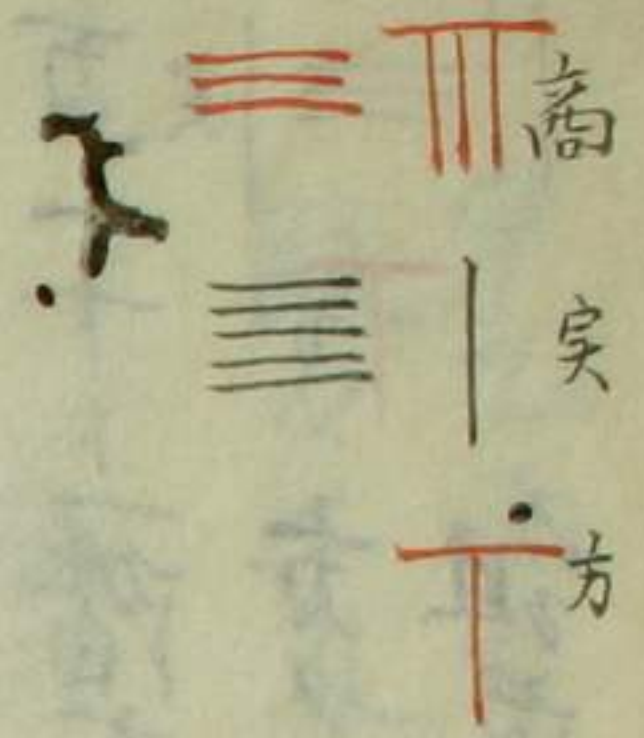 商
実
方